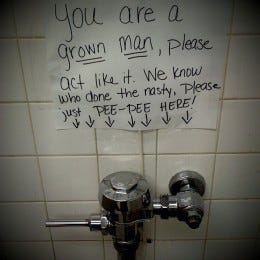 You are a
grown man, please
act like it. We know
who done the nasty, please
just PEE-PEE HERE!
↓ ↓ ↓ ↓ ↓ ↓